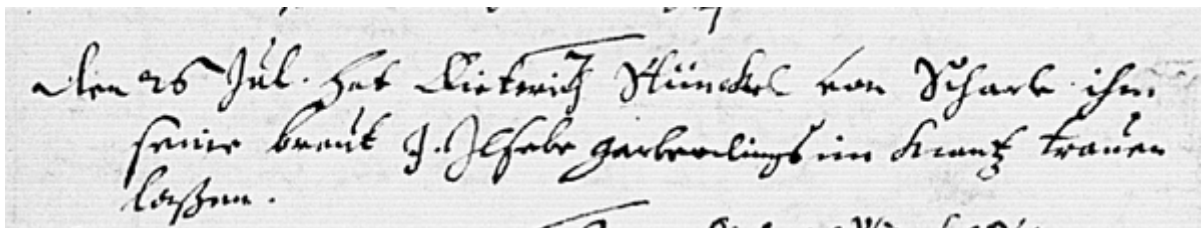 Den 26 Jul. hat Dieterich Stünckel von Scharl ihm
seine braut J. Ilsebe Garberdings im Krantz trauen
laßen.